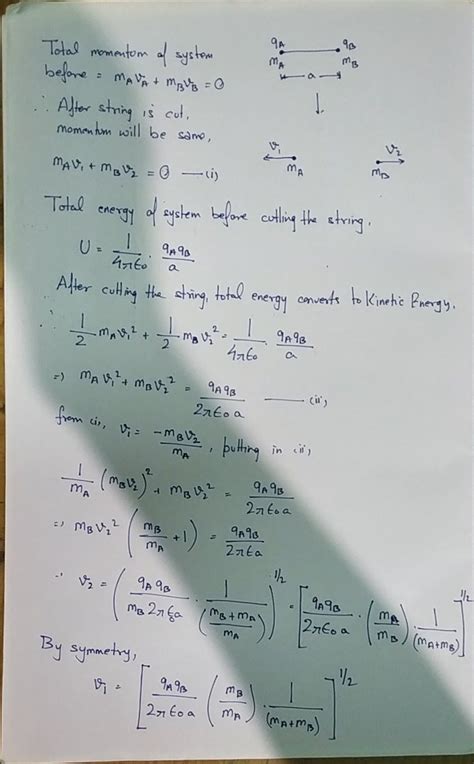 Total momentum of system
before = m_A v_A + m_B v_B = 0
q_A q_B
m_A m_B
a
∴ After string is cut,
momentum will be same,
v_1 v_2
m_A m_B
m_A v_1 + m_B v_2 = 0 —(i)
Total energy of system before cutting the string,
U = \frac{1}{4πϵ_0} · \frac{q_A q_B}{a}
After cutting the string, total energy converts to Kinetic Energy.
∴ \frac{1}{2} m_A v_1^2 + \frac{1}{2} m_B v_2^2 = \frac{1}{4πϵ_0} · \frac{q_A q_B}{a}
⇒ m_A v_1^2 + m_B v_2^2 = \frac{q_A q_B}{2πϵ_0 a} —(ii)
from (i), v_1 = \frac{-m_B v_2}{m_A}, putting in (ii),
\frac{1}{m_A} (m_B v_2)^2 + m_B v_2^2 = \frac{q_A q_B}{2πϵ_0 a}
⇒ m_B v_2^2 (\frac{m_B}{m_A} + 1) = \frac{q_A q_B}{2πϵ_0 a}
∴ v_2 = (\frac{q_A q_B}{m_B 2πϵ_0 a} · \frac{1}{(\frac{m_B + m_A}{m_A})})^{1/2} = [\frac{q_A q_B}{2πϵ_0 a} · (\frac{m_A}{m_B}) · \frac{1}{(m_A + m_B)}]^{1/2}
By symmetry,
v_1 = [\frac{q_A q_B}{2πϵ_0 a} (\frac{m_B}{m_A}) · \frac{1}{(m_A + m_B)}]^{1/2}